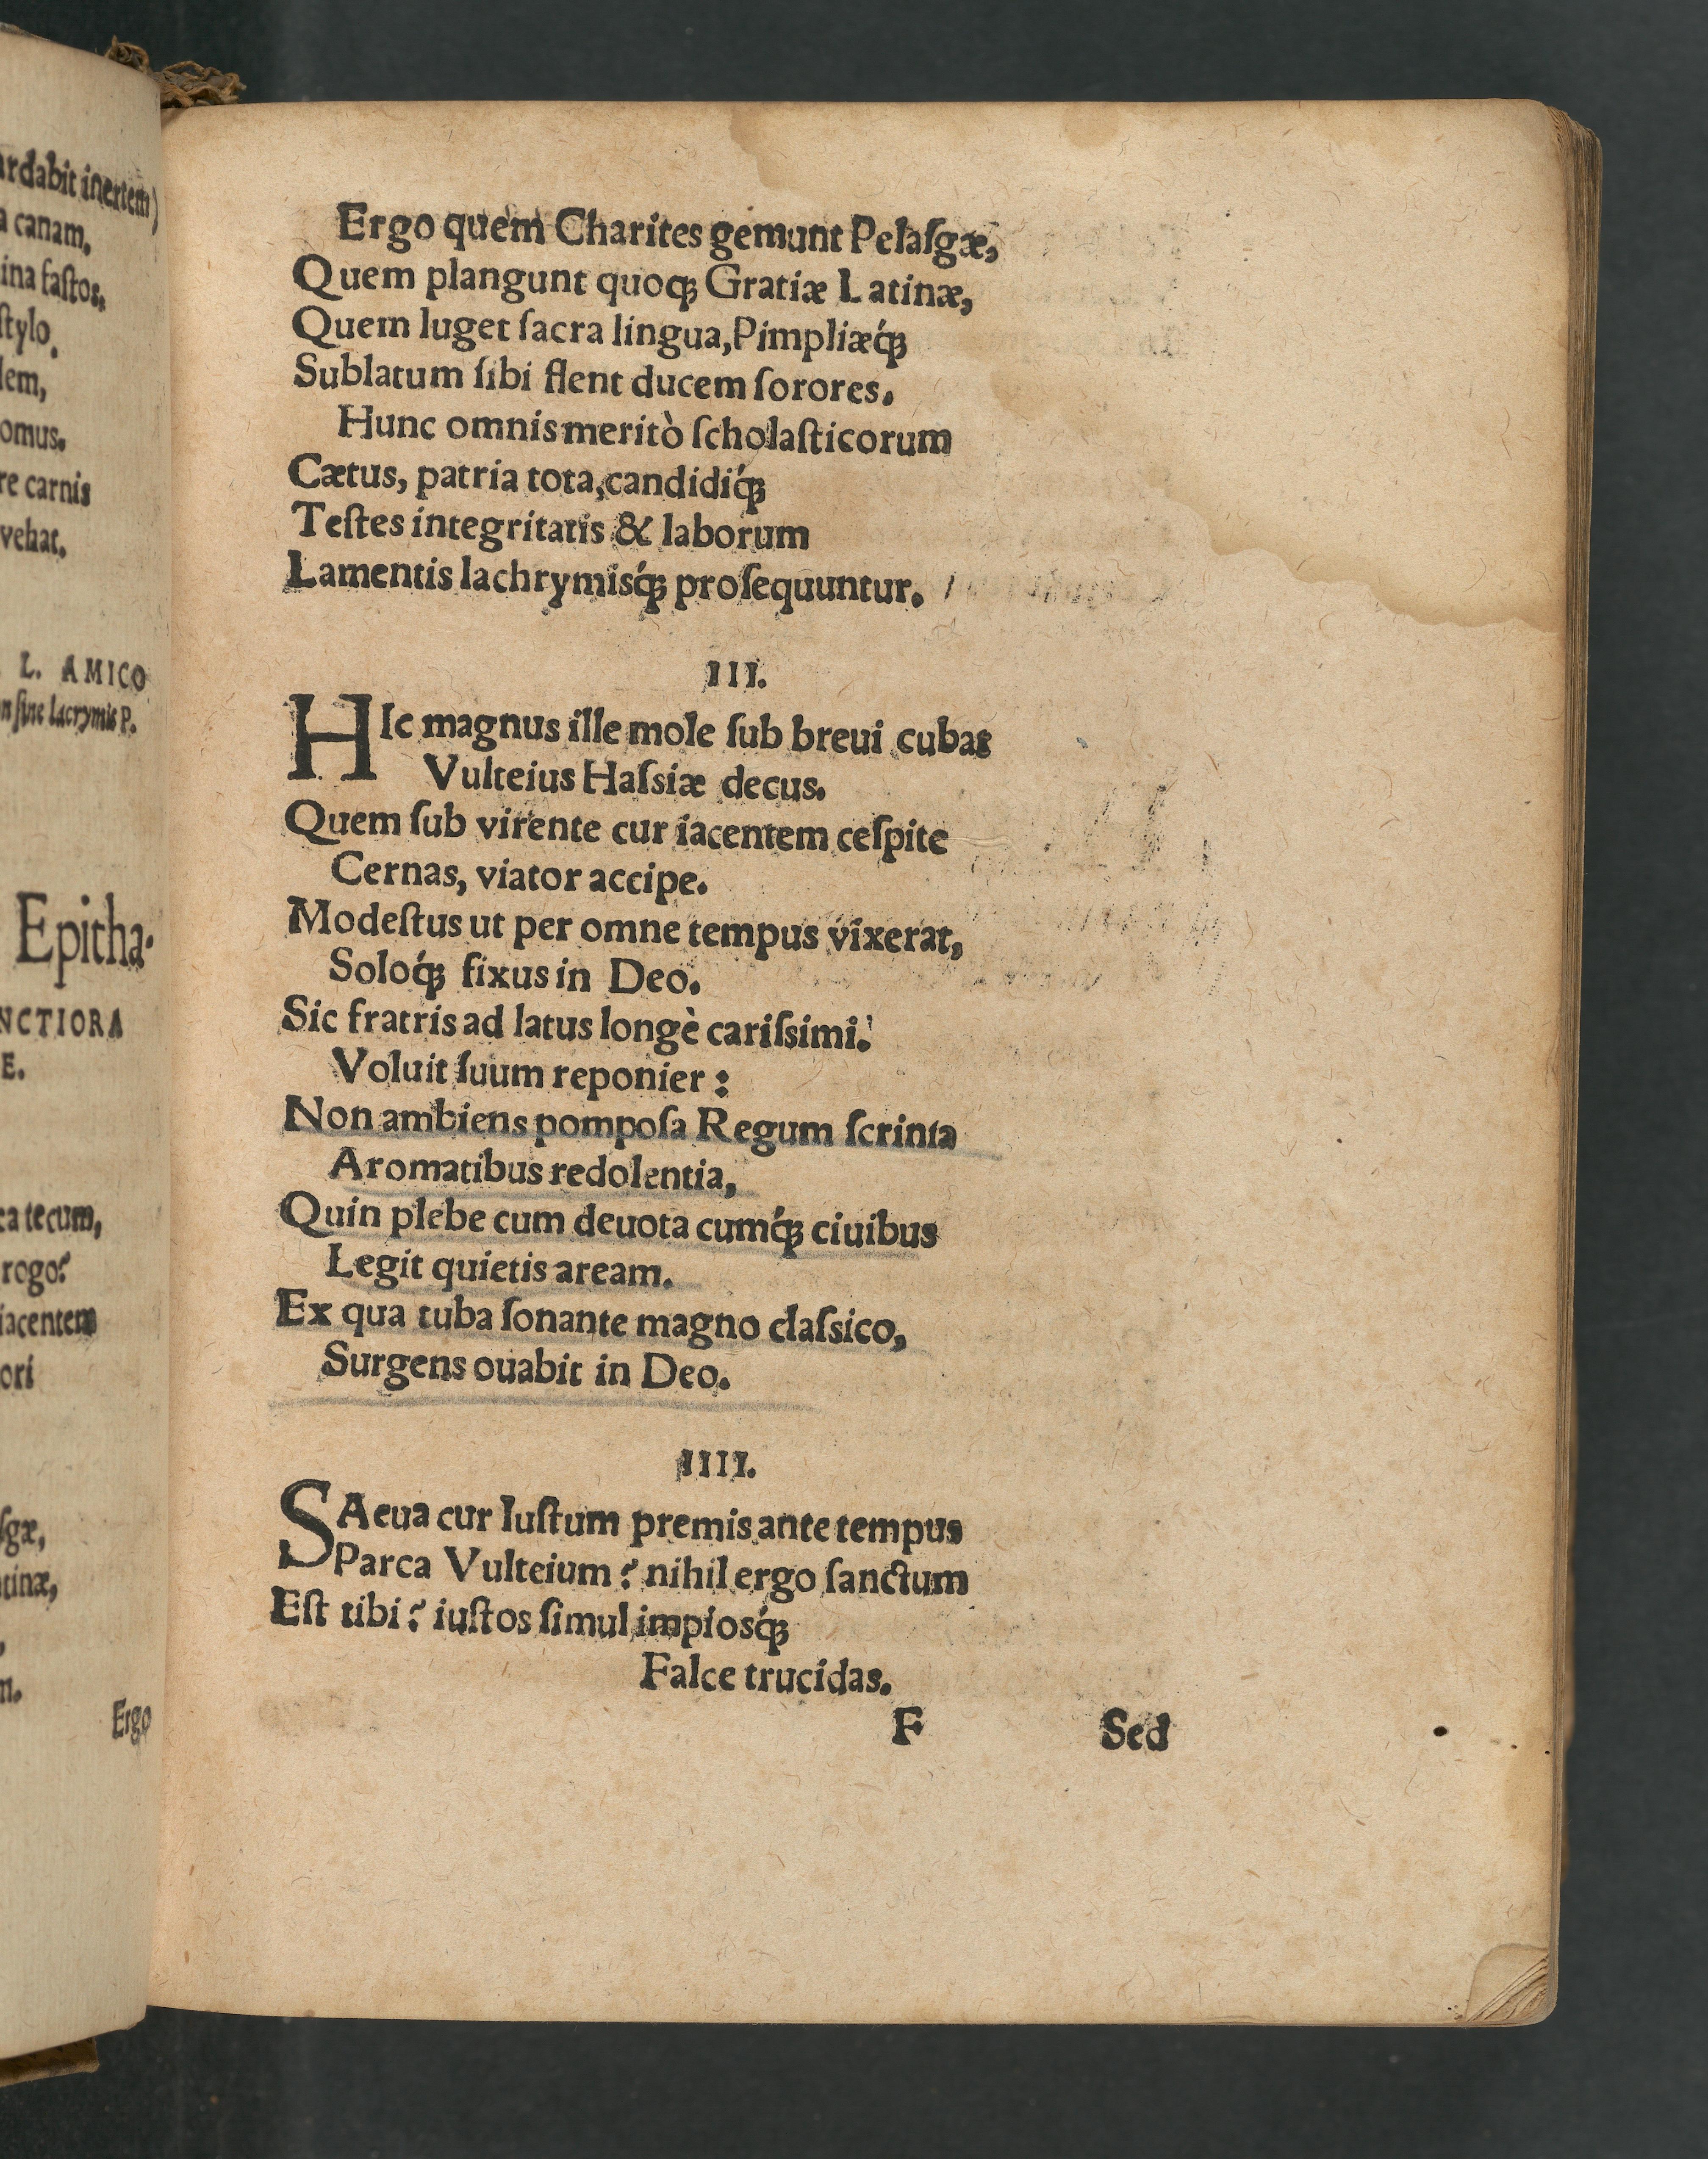 ardabit inertem)
a canam,
ina faſtos,
ſtylo,
lem,
omus.
re carnis
vehat.
L. AMICO
n ſine lacrymis P.
Epitha-
NCTIORA
E.
ca tecum,
rogo?
iacentem
ori
ſgæ,
tinæ,
n.
Ergo
Ergo quem Charites gemunt Pelaſgæ,
Quem plangunt quoq́; Gratiæ Latinæ,
Quem luget ſacra lingua, Pimpliæq́;
Sublatum ſibi flent ducem ſorores.
Hunc omnis meritò ſcholaſticorum
Cætus, patria tota, candidiq́;
Teſtes integritatis & laborum
Lamentis lachrymisq́; proſequuntur.
III.
HIc magnus ille mole ſub breui cubat
Vulteius Haſsiæ decus.
Quem ſub virente cur iacentem ceſpite
Cernas, viator accipe.
Modeſtus ut per omne tempus vixerat,
Soloq́; fixus in Deo.
Sic fratris ad latus longè cariſsimi.
Voluit ſuum reponier:
Non ambiens pompoſa Regum ſcrinia
Aromatibus redolentia,
Quin plebe cum deuota cumq́; ciuibus
Legit quietis aream.
Ex qua tuba ſonante magno claſsico,
Surgens ouabit in Deo.
IIII.
SAeua cur Iuſtum premis ante tempus
Parca Vulteium? nihil ergo ſanctum
Eſt tibi? iuſtos ſimul impiosq́;
Falce trucidas.
F Sed